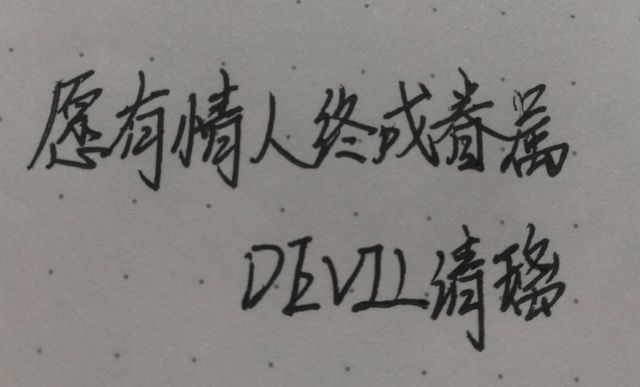 愿有情人终成眷属
DEVIL清瑶